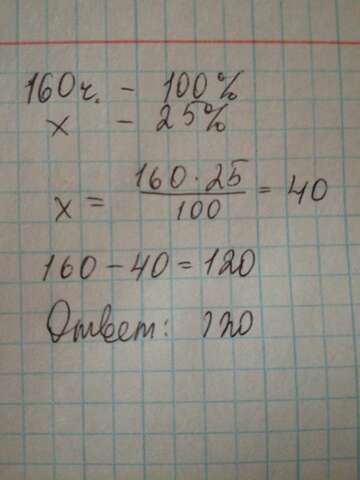 160ч. - 100%
x - 25%
x = 160 · 25 / 100 = 40
160 - 40 = 120
Ответ: 120